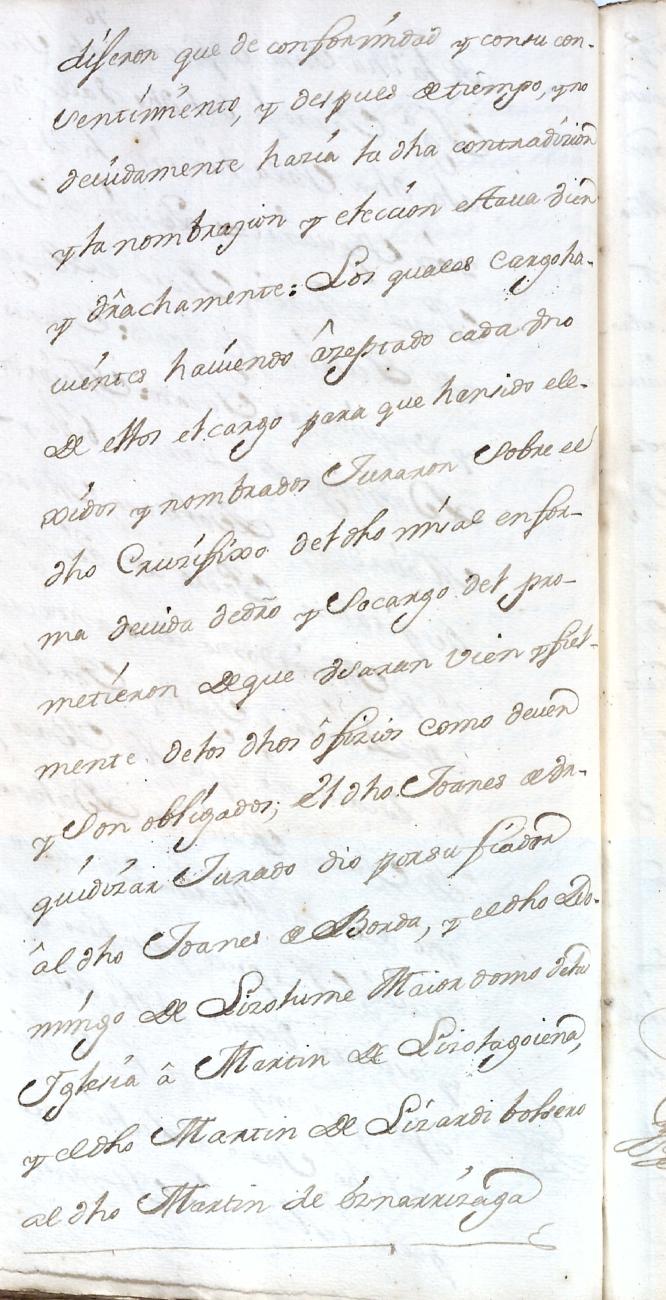 dixeron que de conformidad y consu con-
sentimiento, y despues de tiempo, y no
deuidamente hazia la dha contradizion
y la nombrazion y eleccion estaua bien
y drachamente: Los quales cargoha-
uientes hauiendo âzeptado cada vno
De ellos el cargo para que hansido ele-
xidos y nombrados Juraron Sobre el
dho Cruzifixo del dho misal enfor-
ma deuida dedro y Socargo del pro-
metieron de que vsaran vien y fiel-
mente delos dhos ôfizios como deuen
y Son obligados; El dho Joanes de Vr-
quidizar Jurado dio porsu fiador
âl dho Joanes de Borda, y el dho Do-
mingo De Lizolume Maiordomo dela
Iglesia â Martin De Lizolagoiena,
y el dho Martin De Lizardi bolsero
al dho Martin de